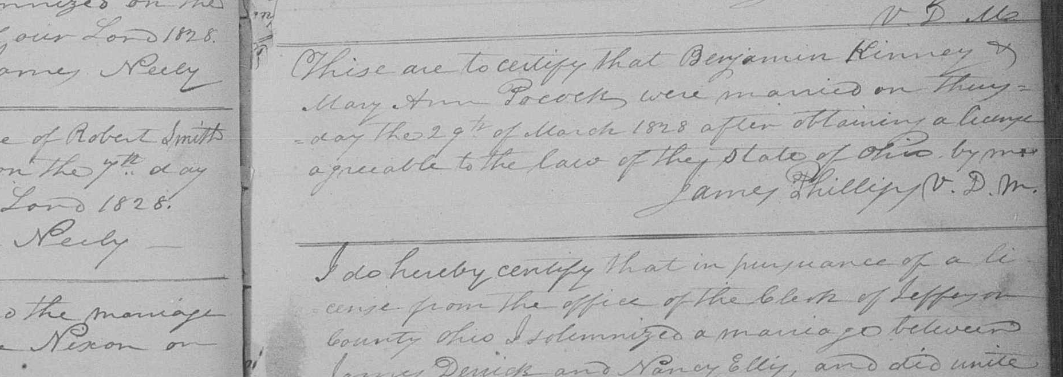 on the
our Lord 1828.
James Neely
e of Robert Smith
on the 7th day
Lord 1828.
Neely
o the marriage
Nixon on
V. D. M
Thise are to certify that Benjamin Kinney &
Mary Ann Pocock were married on thurs=
=day the 29th of March 1828 after obtaining a licence
agreeable to the law of the State of Ohio by me
James Phillips V. D. M.
I do hereby certify that in pursuance of a li
cense from the office of the Clerk of Jefferson
County Ohio I solemnized a marriage between
James Derrick and Nancy Ellis, and did unite